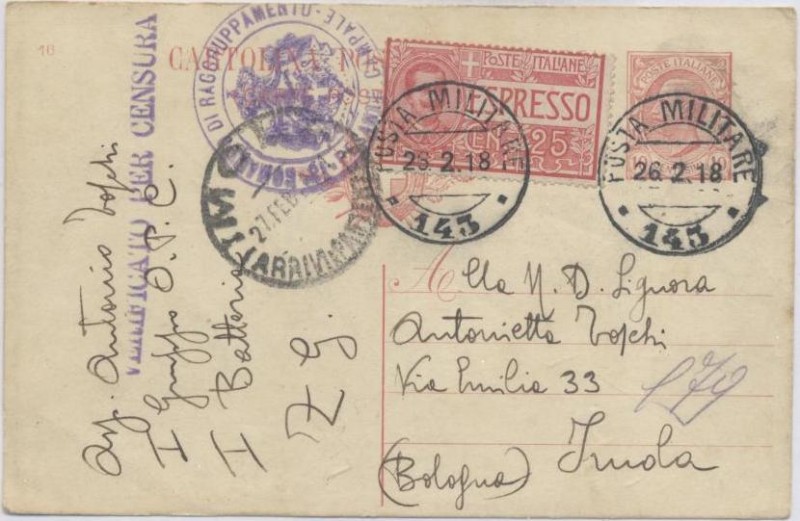 16
CARTOLINA POS
DI RAGGRUPPAMENTO
VERIFICATO PER CENSURA
POSTE ITALIANE
ESPRESSO
CENT. 25
POSTE ITALIANE
POSTA MILITARE
26.2.18
143
POSTA MILITARE
26.2.18
143
IMOLA
27 FEB
(ARRIVI
Alla N. D. Signora
Antonietta Toschi
Via Emilia 33
(Bologna) Imola
Antonio Toschi
I Gruppo O.P.C.
I Batteria
Z G.